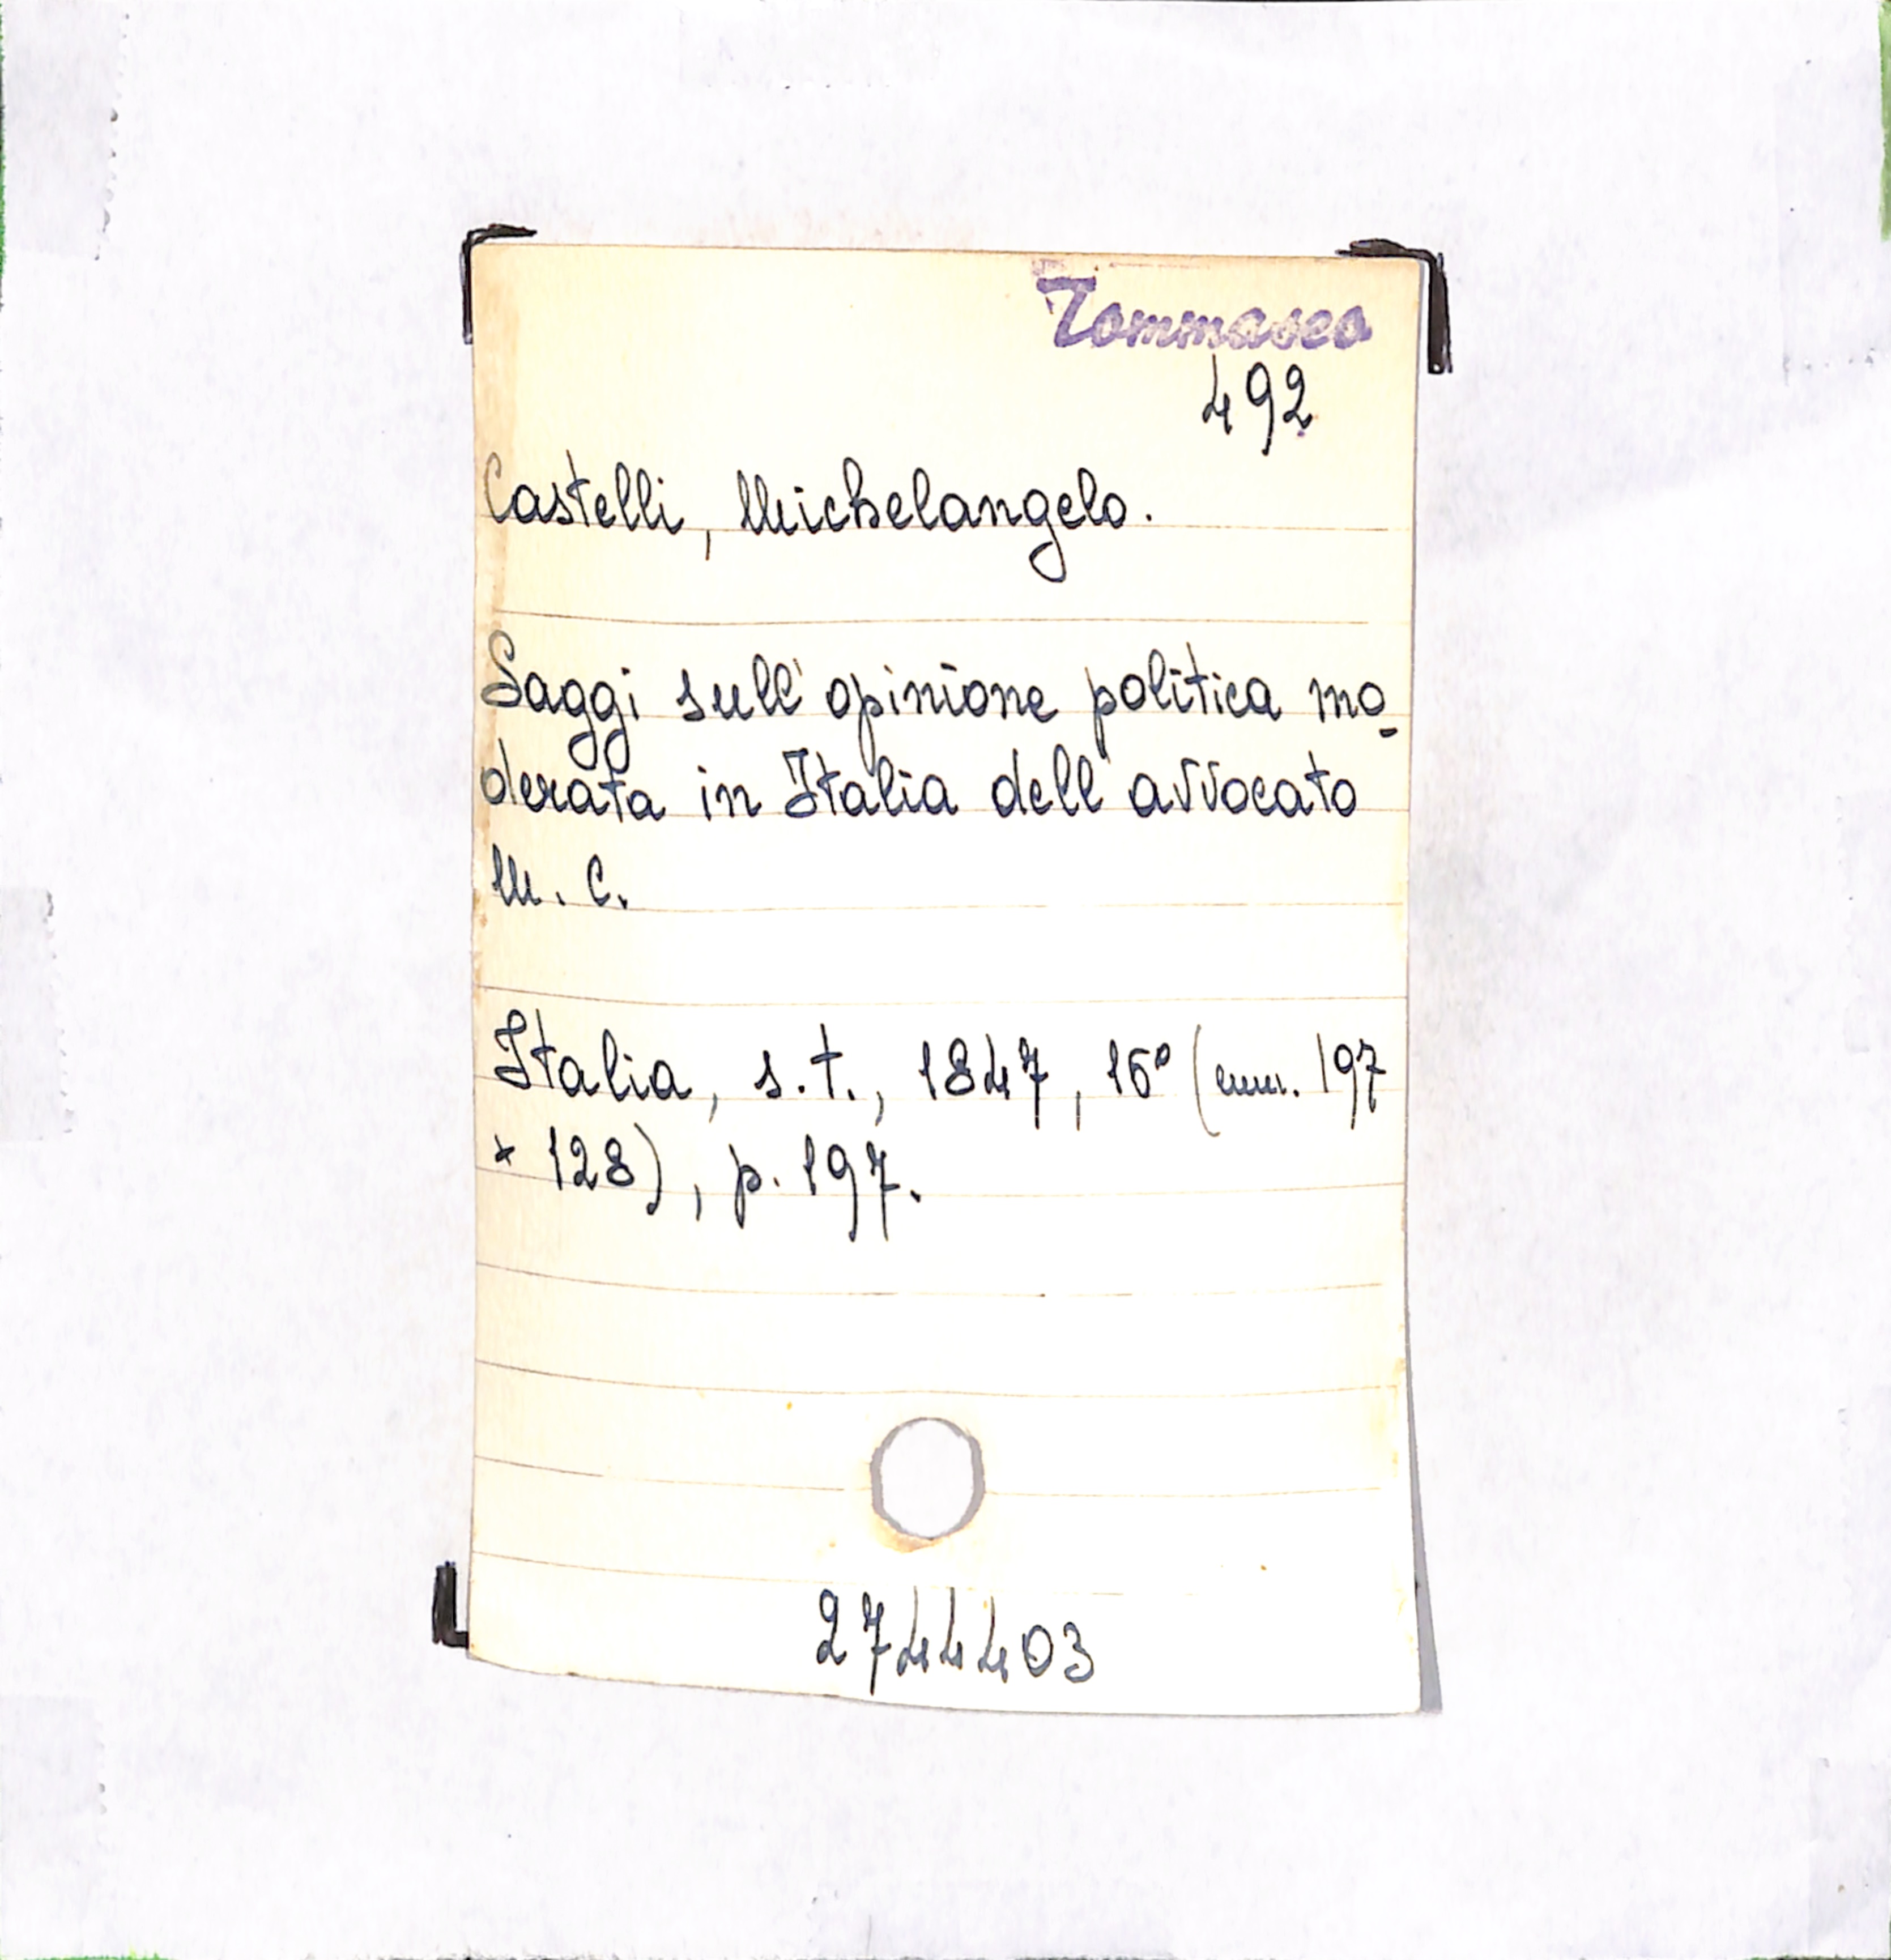 Tommaseo
492
Castelli, Michelangelo.
Saggi sull'opinione politica mo-
derata in Italia dell'avvocato
M. C.
Italia, s.t., 1847, 16° (mm. 197
x 128), p. 197.
2744403